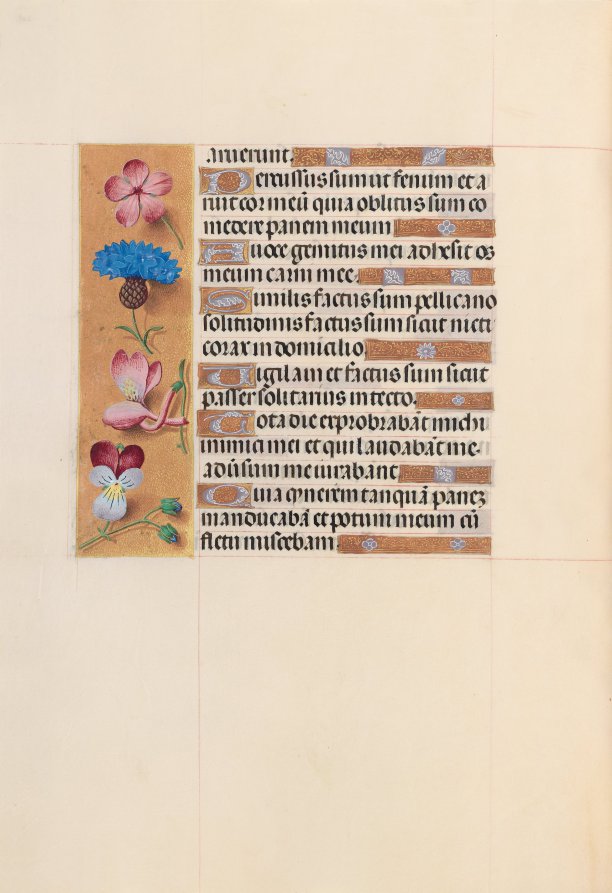 aruerunt.
Percussus sum ut fenum et a
ruit cor meū quia oblitus sum co
medere panem meum
A uoce gemitus mei adhesit os
meum carni mee.
Similis factus sum pellicano
solitudinis factus sum sicut nicti
corax in domicilio
Uigilaui et factus sum sicut
passer solitarius in tecto.
Tota die exprobrabāt michi
inimici mei et qui laudabāt me
aduersum me iurabant
Quia cynerem tanquā panez
manducabā et potum meum cū
fletu miscebam.